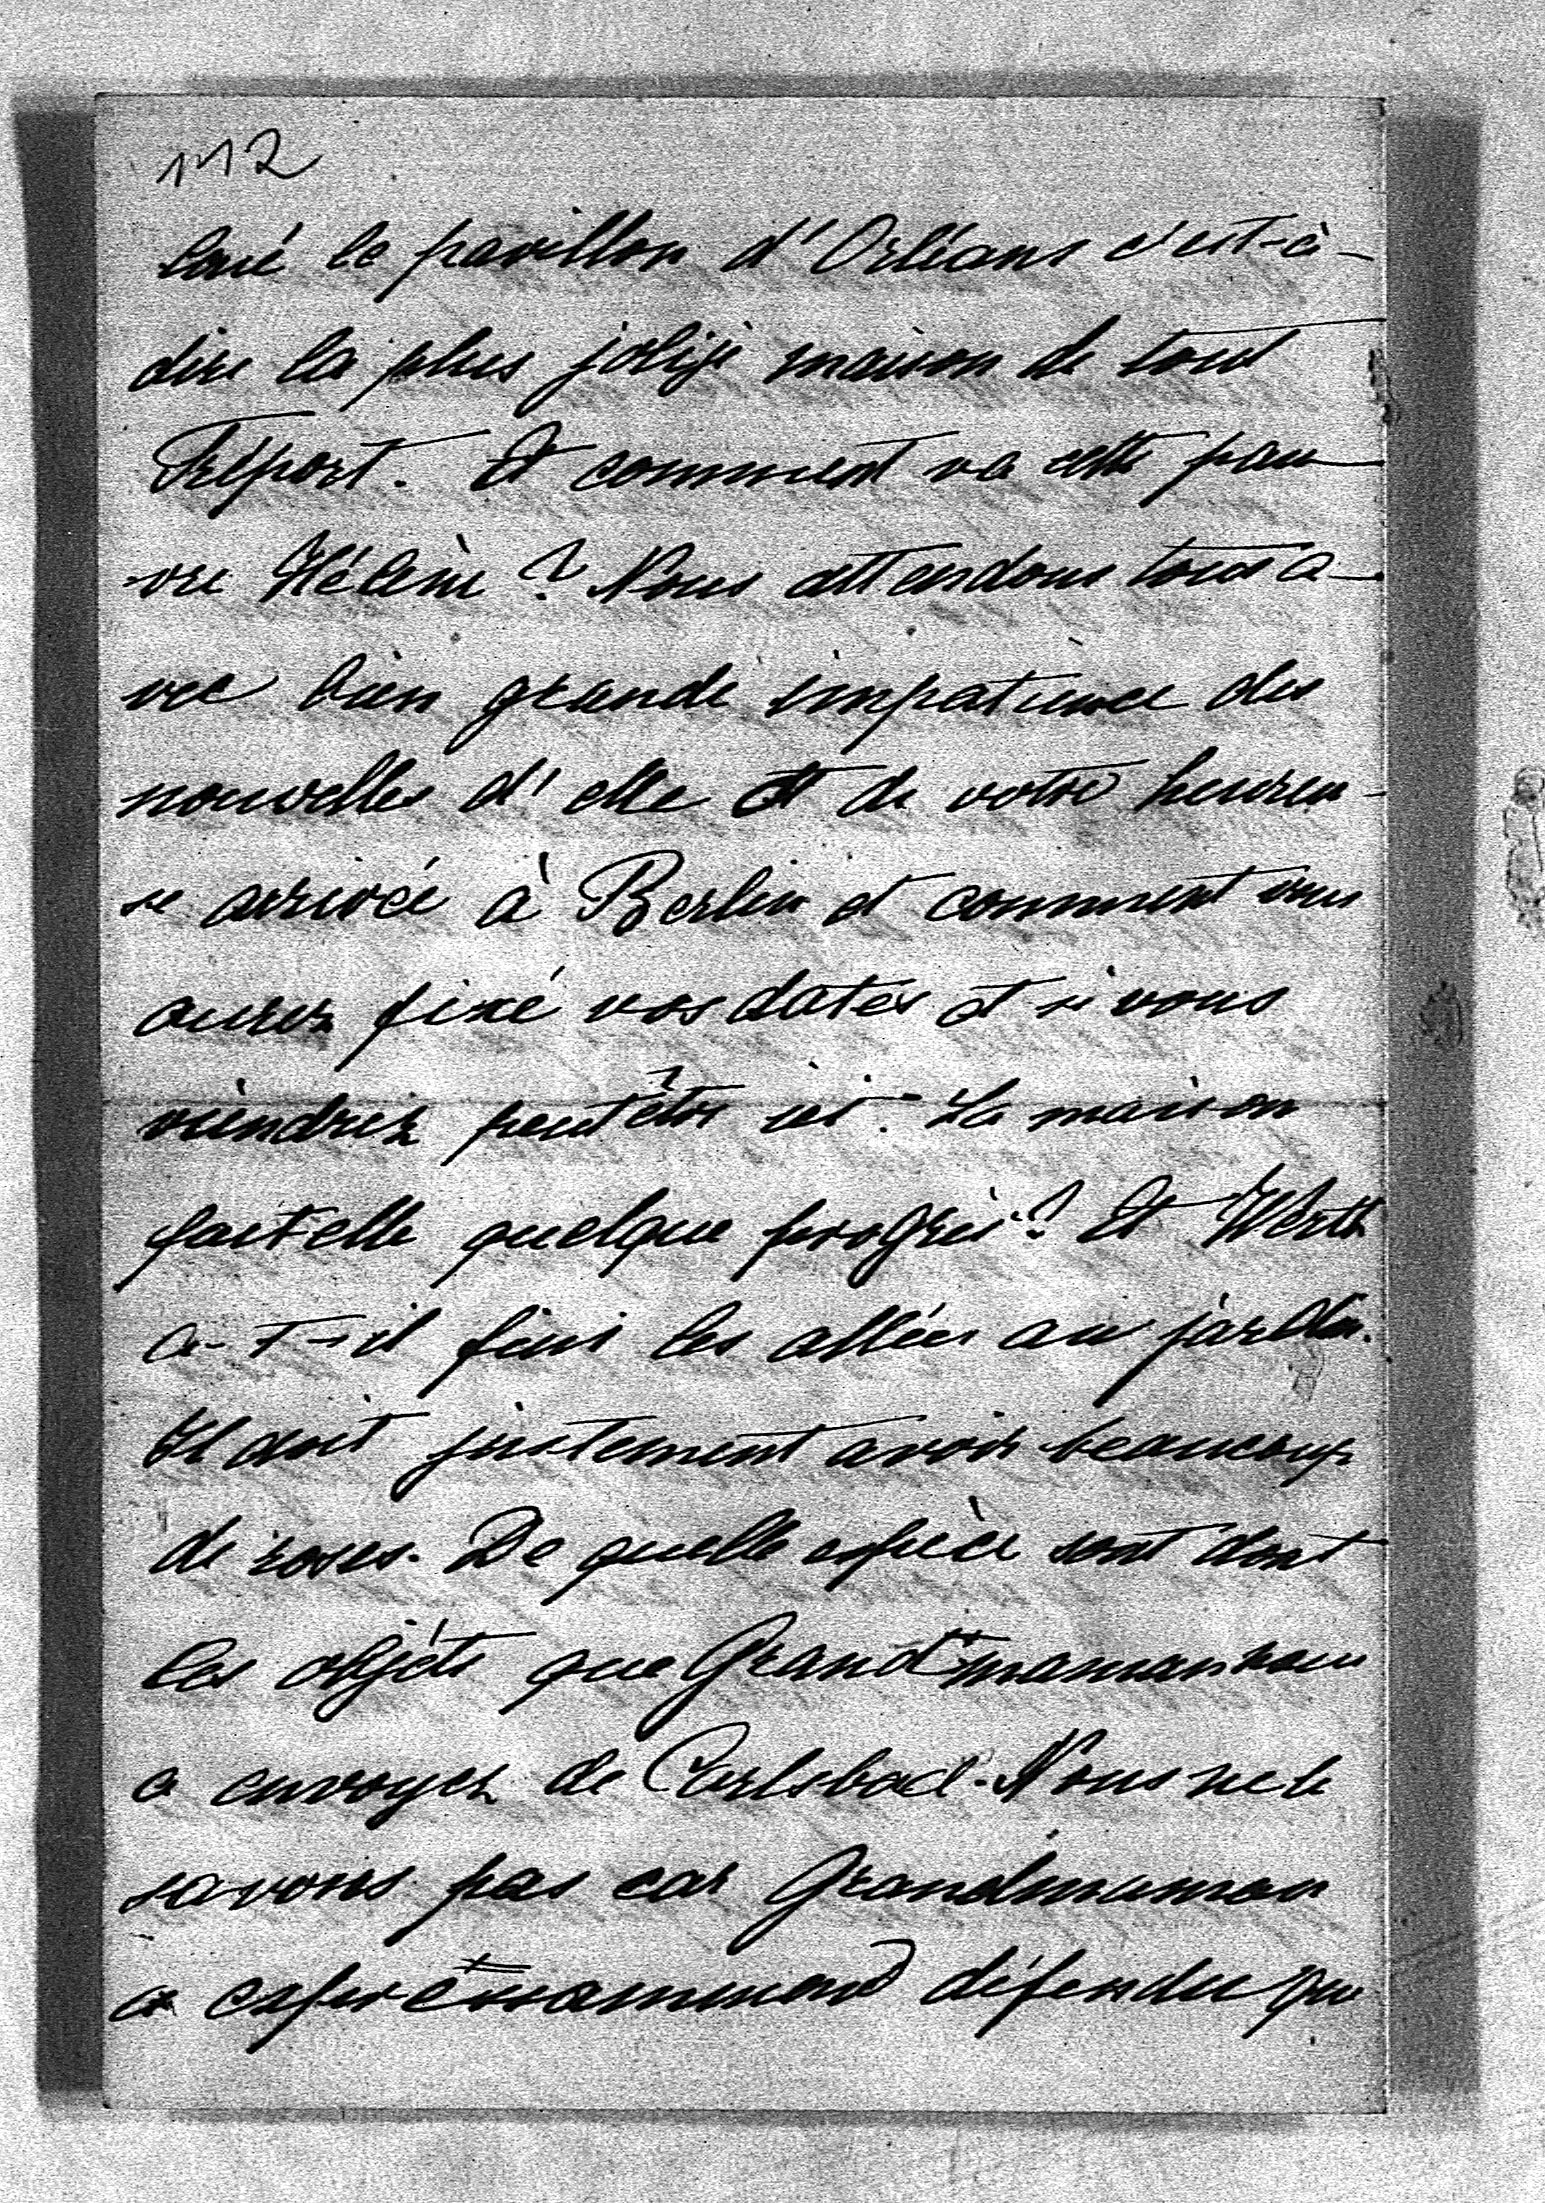 112
loué le pavillon d'Orléans c'est-à-
dire la plus jolie maison de tout
Tréport. Et comment va cette pau-
vre Hélène? Nous attendons tous a-
vec bien grande impatience des
nouvelles d'elle et de votre heureu-
se arrivée à Berlin et comment vous
aurez fixé vos dates et si vous
viendrez peutêtre ici. La maison
fait elle quelque progrès? Et Werth
a-t-il fini les allées au jardin.
Il doit justement avoir beaucoup
de roses. De quelle espèce sont dont
les objéts que Grand'maman nous
a envoyez de Carlsbad. Nous ne le
savons pas car Grandmaman
a expressamment défendu que